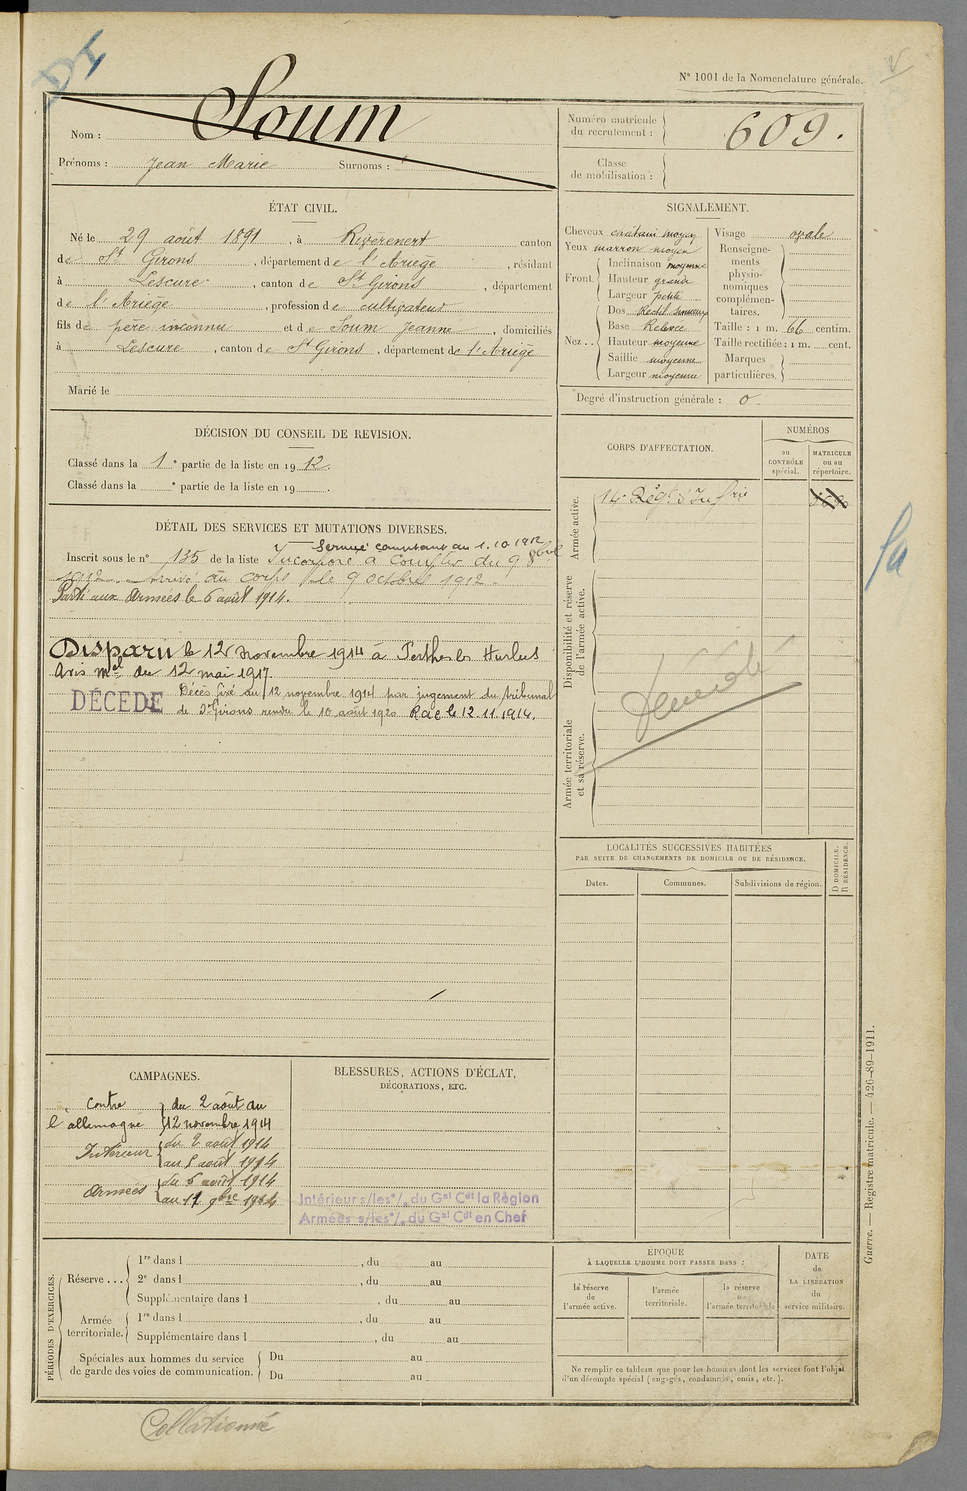 DI
N° 1001 de la Nomenclature générale.
Nom : Soum
Prénoms : Jean Marie Surnoms :
Numéro matricule du recrutement : 609.
Classe de mobilisation :
ÉTAT CIVIL.
Né le 29 août 1891, à Rivèrenert canton
de St Girons, département de l'Ariège, résidant
à Lescure, canton de St Girons, département
de l'Ariège, profession de cultivateur
fils de père inconnu et de Soum Jeanne, domiciliés
à Lescure, canton de St Girons, département de l'Ariège
Marié le
SIGNALEMENT.
Cheveux châtain moyen
Yeux marron moyen
Front Inclinaison moyenne
Hauteur grande
Largeur petite
Nez Dos Rectil. sinueux
Base Relevée
Hauteur moyenne
Saillie moyenne
Largeur moyenne
Visage ovale
Renseignements physionomiques complémentaires.
Taille : 1 m. 66 centim.
Taille rectifiée : 1 m. cent.
Marques particulières.
Degré d'instruction générale : 0
DÉCISION DU CONSEIL DE REVISION.
Classé dans la 1e partie de la liste en 1912.
Classé dans la e partie de la liste en 19 .
CORPS D'AFFECTATION.
NUMÉROS
au CONTRÔLE spécial.
MATRICULE ou au répertoire.
Armée active.
14e Régt d'Infrie
Disponibilité et réserve de l'armée active.
Armée territoriale et sa réserve.
DÉTAIL DES SERVICES ET MUTATIONS DIVERSES.
Service comptant du 1.10.1912
Inscrit sous le n° 135 de la liste Incorporé à compter du 9 8bre
1912. Arrivé au corps le 9 octobre 1912.
Parti aux Armées le 6 août 1914.
Disparu le 12 novembre 1914 à Perthes les Hurlus
Avis Mel du 12 mai 1917.
DÉCÉDÉ Décès fixé au 12 novembre 1914 par jugement du tribunal
de St Girons rendu le 10 août 1920 Raé le 12.11.1914.
LOCALITÉS SUCCESSIVES HABITÉES
PAR SUITE DE CHANGEMENTS DE DOMICILE OU DE RÉSIDENCE.
Dates.
Communes.
Subdivisions de région.
D DOMICILE.
R RÉSIDENCE.
CAMPAGNES.
Contre l'allemagne du 2 août au
12 novembre 1914
Intérieur du 2 août 1914
au 5 août 1914
Armées du 6 août 1914
au 12 9bre 1914
BLESSURES, ACTIONS D'ÉCLAT,
DÉCORATIONS, ETC.
Intérieur s/les o/. du Gal Cdt la Région
Armées s/les o/. du Gal Cdt en Chef
PÉRIODES D'EXERCICES.
Réserve ...
1re dans l , du au
2e dans l , du au
Supplémentaire dans l , du au
Armée territoriale.
1re dans l , du au
Supplémentaire dans l , du au
Spéciales aux hommes du service de garde des voies de communication.
Du au
Du au
ÉPOQUE
À LAQUELLE L'HOMME DOIT PASSER DANS :
la réserve de l'armée active.
l'armée territoriale.
la réserve de l'armée territoriale
DATE de LA LIBÉRATION du service militaire.
Ne remplir ce tableau que pour les hommes dont les services font l'objet
d'un décompte spécial (engagés, condamnés, omis, etc.).
Guerre. — Registre matricule. — 426-89-1911.
Collationné